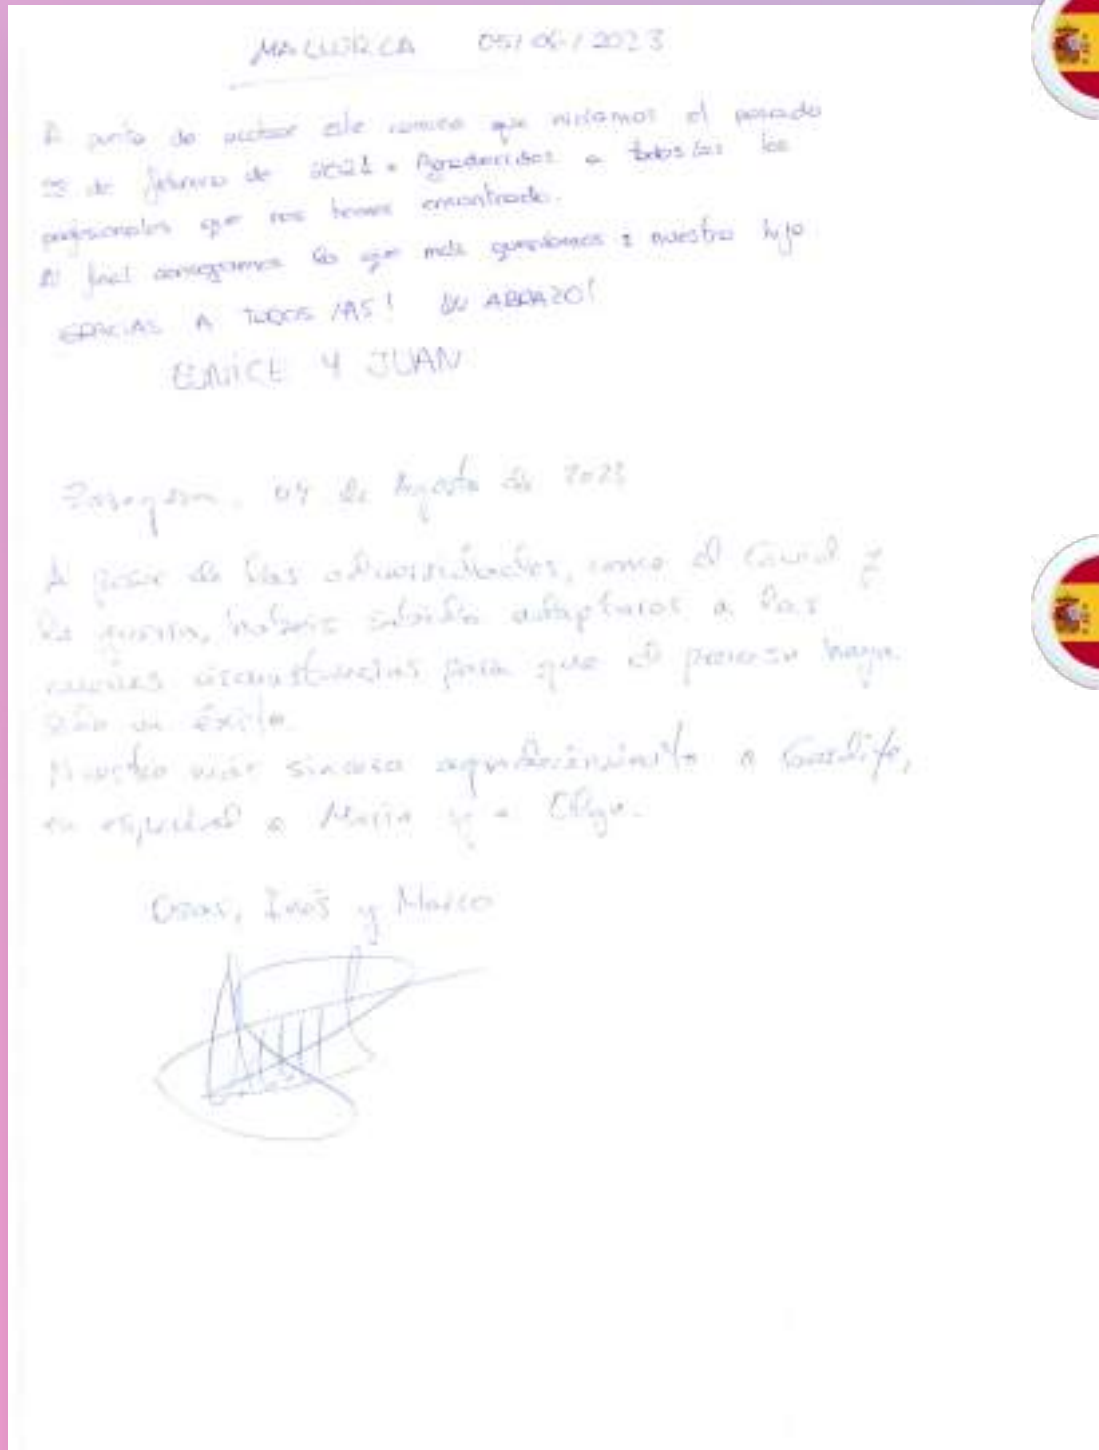 MALLORCA 05/06/2023
A punto de acabar este camino que iniciamos el pasado
de febrero de 2021. Agradecidos a todos/as los
profesionales que nos hemos encontrado.
Al final conseguimos lo que más queríamos: nuestro hijo
GRACIAS A TODOS/AS! UN ABRAZO!
EUNICE Y JUAN
Zaragoza, 04 de Agosto de 2023
A pesar de las adversidades, como el Covid y
la guerra, habéis sabido adaptaros a las
nuevas circunstancias para que el proceso haya
sido un éxito.
Nuestro más sincero agradecimiento a
en especial a María y a Olga.
Oscar, Inés y Marco